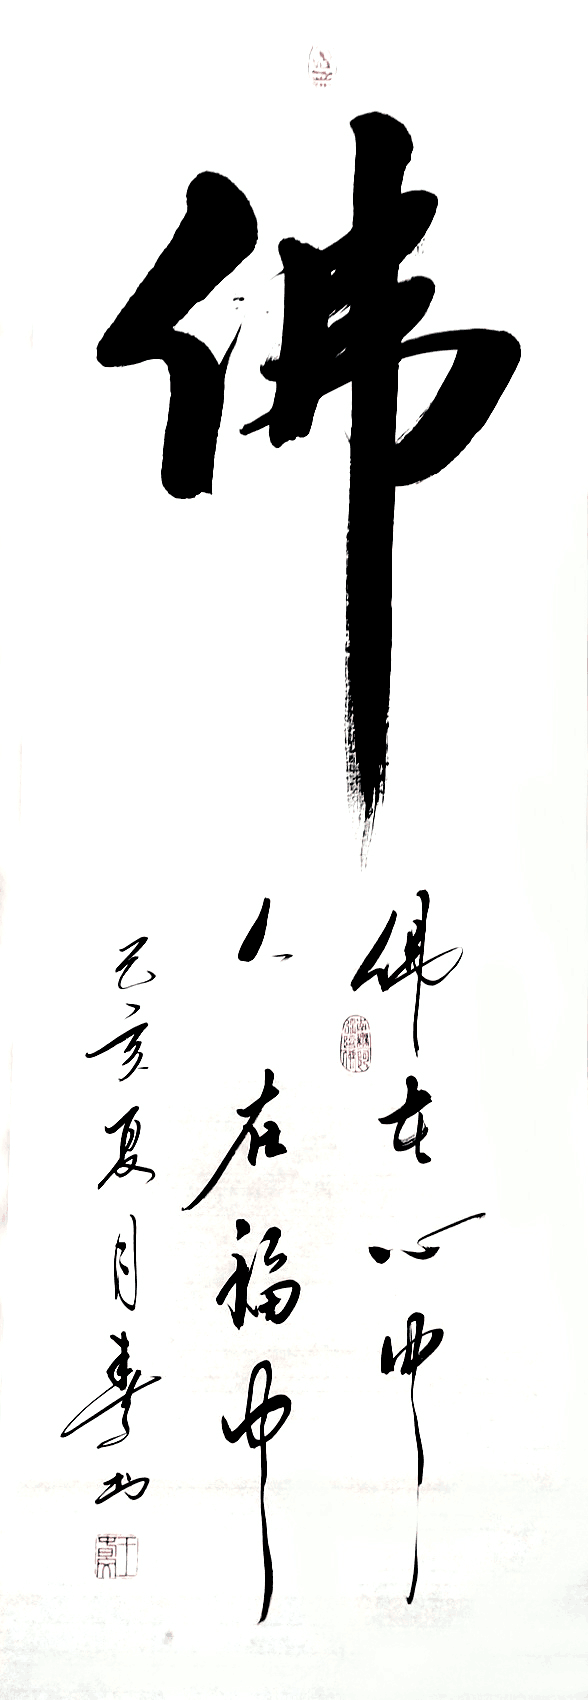 佛
佛在心中
人在福中
己亥夏月寿功